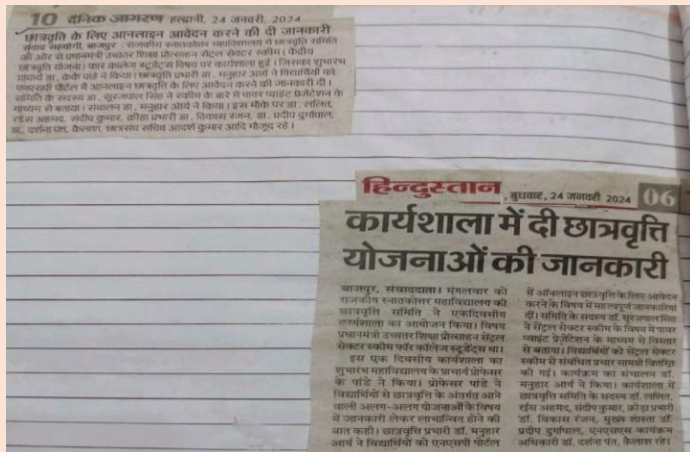 10 दैनिक जागरण हल्द्वानी, 24 जनवरी, 2024
छात्रवृति के लिए आनलाइन आवेदन करने की दी जानकारी
संवाद सहयोगी, बाजपुर : राजकीय स्नातकोत्तर महाविद्यालय में छात्रवृति समिति
की ओर से प्रधानमंत्री उच्चतर शिक्षा प्रोत्साहन सेंट्रल सेक्टर स्कीम ( केंद्रीय
छात्रवृति योजना) फार कालेज स्टूडेंट्स विषय पर कार्यशाला हुई। जिसका शुभारंभ
प्राचार्य डा. केके पांडे ने किया। छात्रवृति प्रभारी डा. मनुहार आर्य ने विद्यार्थियों को
एनएसपी पोर्टल में आनलाइन छात्रवृति के लिए आवेदन करने की जानकारी दी।
समिति के सदस्य डा. सूरजपाल सिंह ने स्कीम के बारे में पावर प्वाइंट प्रेजेंटेशन के
माध्यम से बताया। संचालन डा. मनुहार आर्य ने किया। इस मौके पर डा. ललित,
रईस अहमद, संदीप कुमार, क्रीड़ा प्रभारी डा. विकास रंजन, डा. प्रदीप दुर्गापाल,
डा. दर्शना पंत, कैलाश, छात्रसंघ सचिव आदर्श कुमार आदि मौजूद रहे।
हिन्दुस्तान , बुधवार, 24 जनवरी 2024 06
कार्यशाला में दी छात्रवृत्ति
योजनाओं की जानकारी
बाजपुर, संवाददाता। मंगलवार को
राजकीय स्नातकोत्तर महाविद्यालय की
छात्रवृत्ति समिति ने एकदिवसीय
कार्यशाला का आयोजन किया। विषय
प्रधानमंत्री उच्चतर शिक्षा प्रोत्साहन सेंट्रल
सेक्टर स्कीम फॉर कॉलेज स्टूडेंट्स था।
इस एक दिवसीय कार्यशाला का
शुभारंभ महाविद्यालय के प्राचार्य प्रोफेसर
के पांडे ने किया। प्रोफेसर पांडे ने
विद्यार्थियों से छात्रवृत्ति के अंतर्गत आने
वाली अलग-अलग योजनाओं के विषय
में जानकारी लेकर लाभान्वित होने की
बात कही। छात्रवृत्ति प्रभारी डॉ. मनुहार
आर्य ने विद्यार्थियों को एनएसपी पोर्टल
में ऑनलाइन छात्रवृत्ति के लिए आवेदन
करने के विषय में महत्वपूर्ण जानकारियां
दीं। समिति के सदस्य डॉ. सूरजपाल सिंह
ने सेंट्रल सेक्टर स्कीम के विषय में पावर
प्वाइंट प्रेजेंटेशन के माध्यम से विस्तार
से बताया। विद्यार्थियों को सेंट्रल सेक्टर
स्कीम से संबंधित प्रचार सामग्री वितरित
की गई। कार्यक्रम का संचालन डॉ.
मनुहार आर्य ने किया। कार्यशाला में
छात्रवृत्ति समिति के सदस्य डॉ. ललित,
रईस अहमद, संदीप कुमार, क्रीड़ा प्रभारी
डॉ. विकास रंजन, मुख्य शास्ता डॉ.
प्रदीप दुर्गापाल, एनएसएस कार्यक्रम
अधिकारी डॉ. दर्शना पंत, कैलाश रहे।